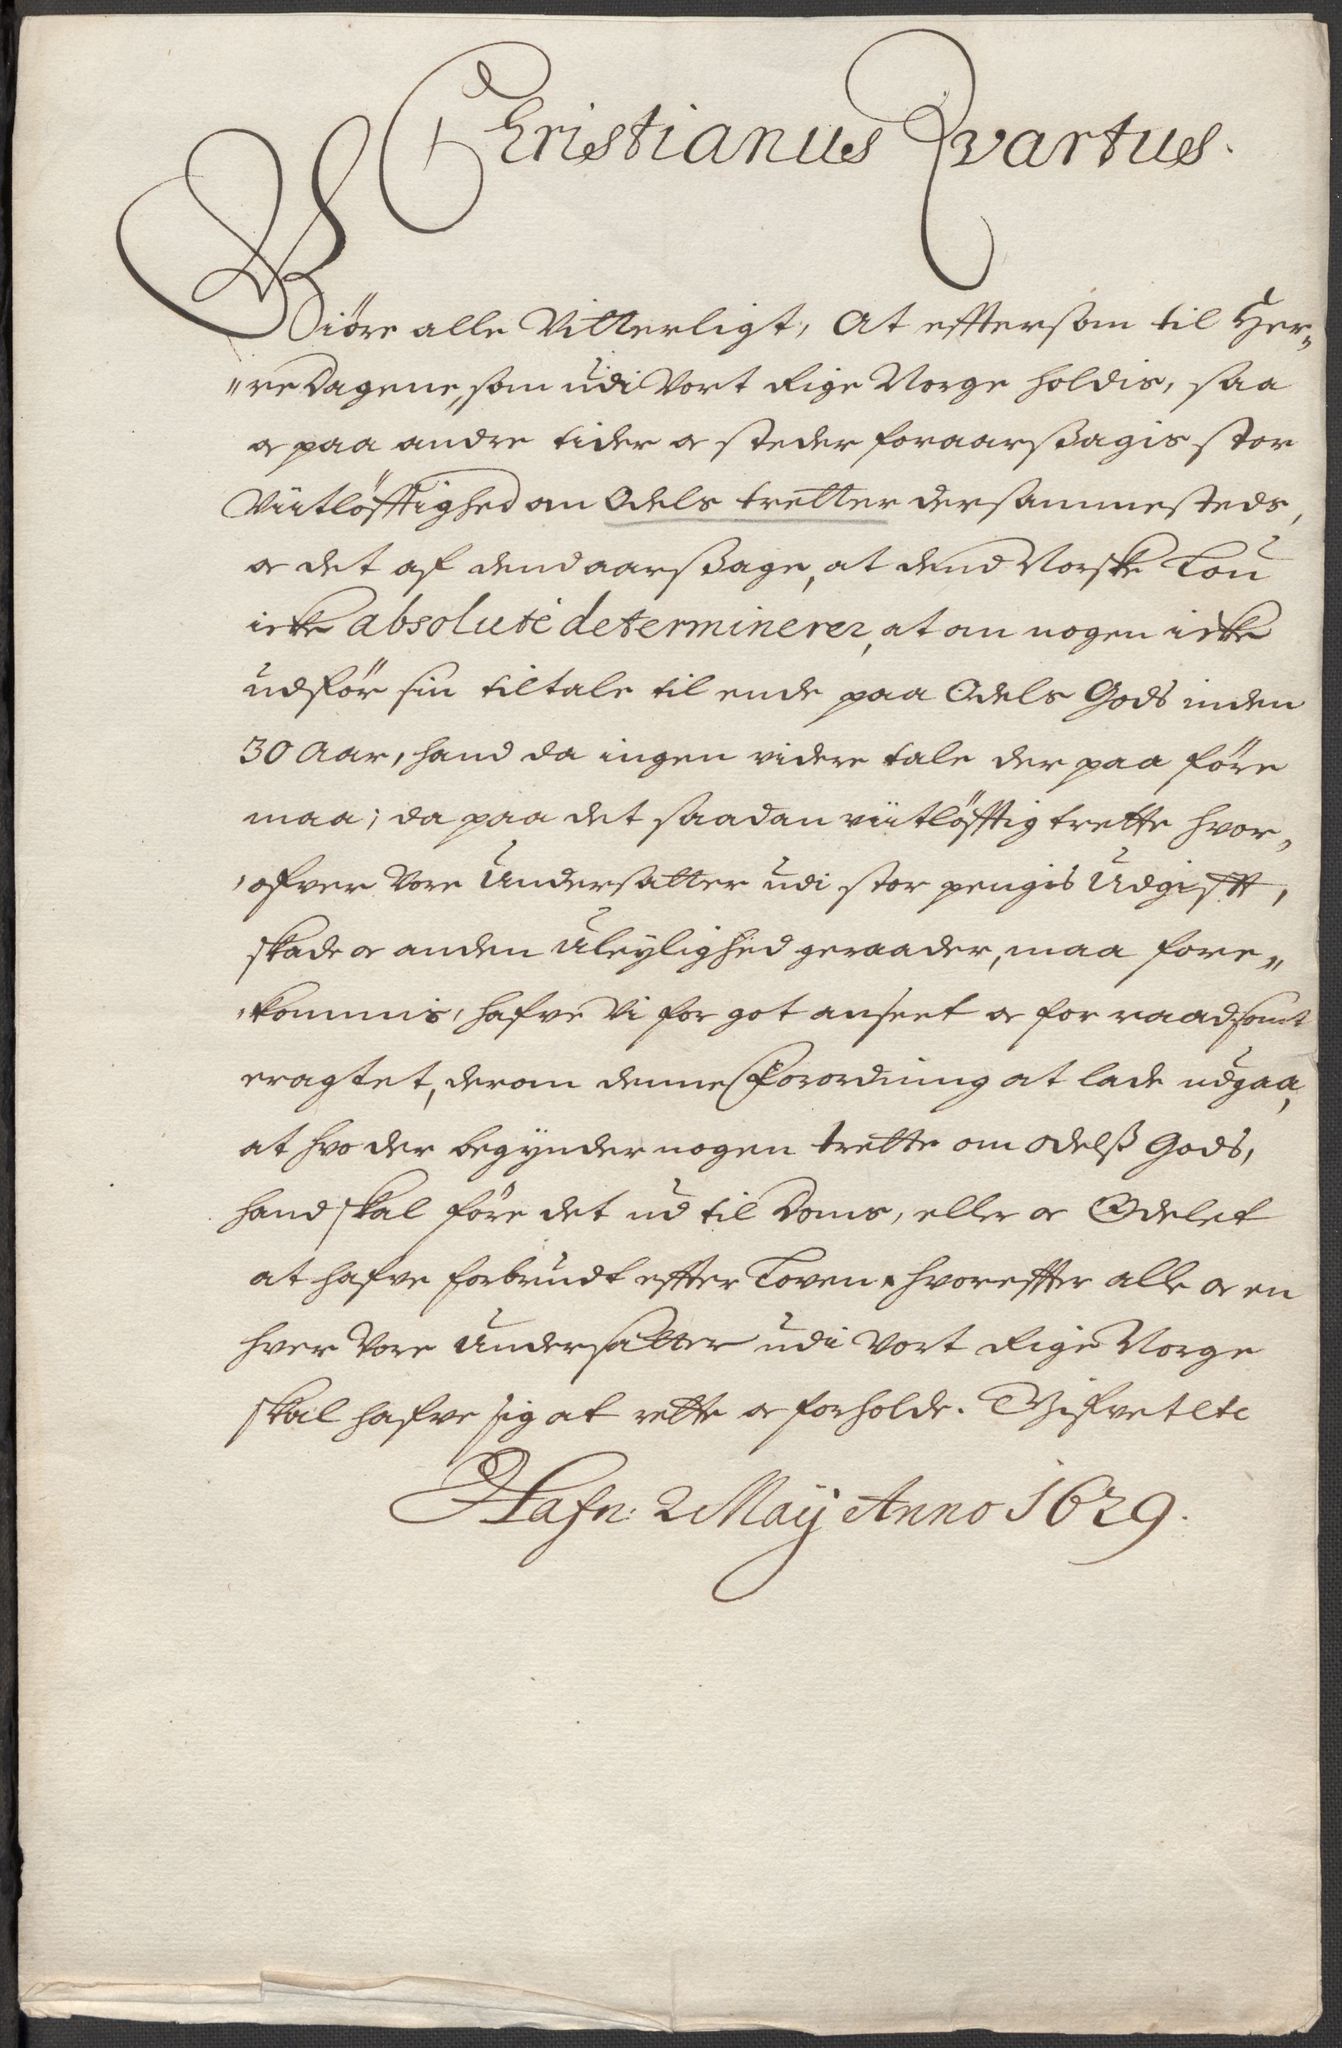 Christianus Qvartus.
Giöre alle Vitterligt, At effterson til Her„
„re Dagene, som udi Vort Rige Norge holdis, saa
oc paa andre tider oc steder foraarßagis stor
Viitlöfftighed om Odels tretter dersammesteds,
oc det af dend aarßage, at dend Norske Lou
icke absolutè determinerer, at om nogen icke
udför sin tiltale til ende paa Odels Gods inden
30 Aar, hand da ingen videre tale der paa före
maa; da paa det saadan viitlöfftig trette hvor„
„ofver Vore Undersatter udi stor pengis Udgifft,
skade oc anden Uleylighed geraader, maa fore„
„kommis, hafve Vi for got anseet oc for raadsomt
eragtet, derom denne Forordning at lade udgaa,
at hvo der begynder nogen trette om odelß Gods,
hand skal före det ud til Doms, eller oc Odelet
at hafve forbrudt effter Loven. hvoreffter alle oc en
hver Vore Undersatter udi Vort Rige Norge
skal hafve sig at rette oc forholde. Gifvet etc
Hafn: 2 Maij Anno 1629.